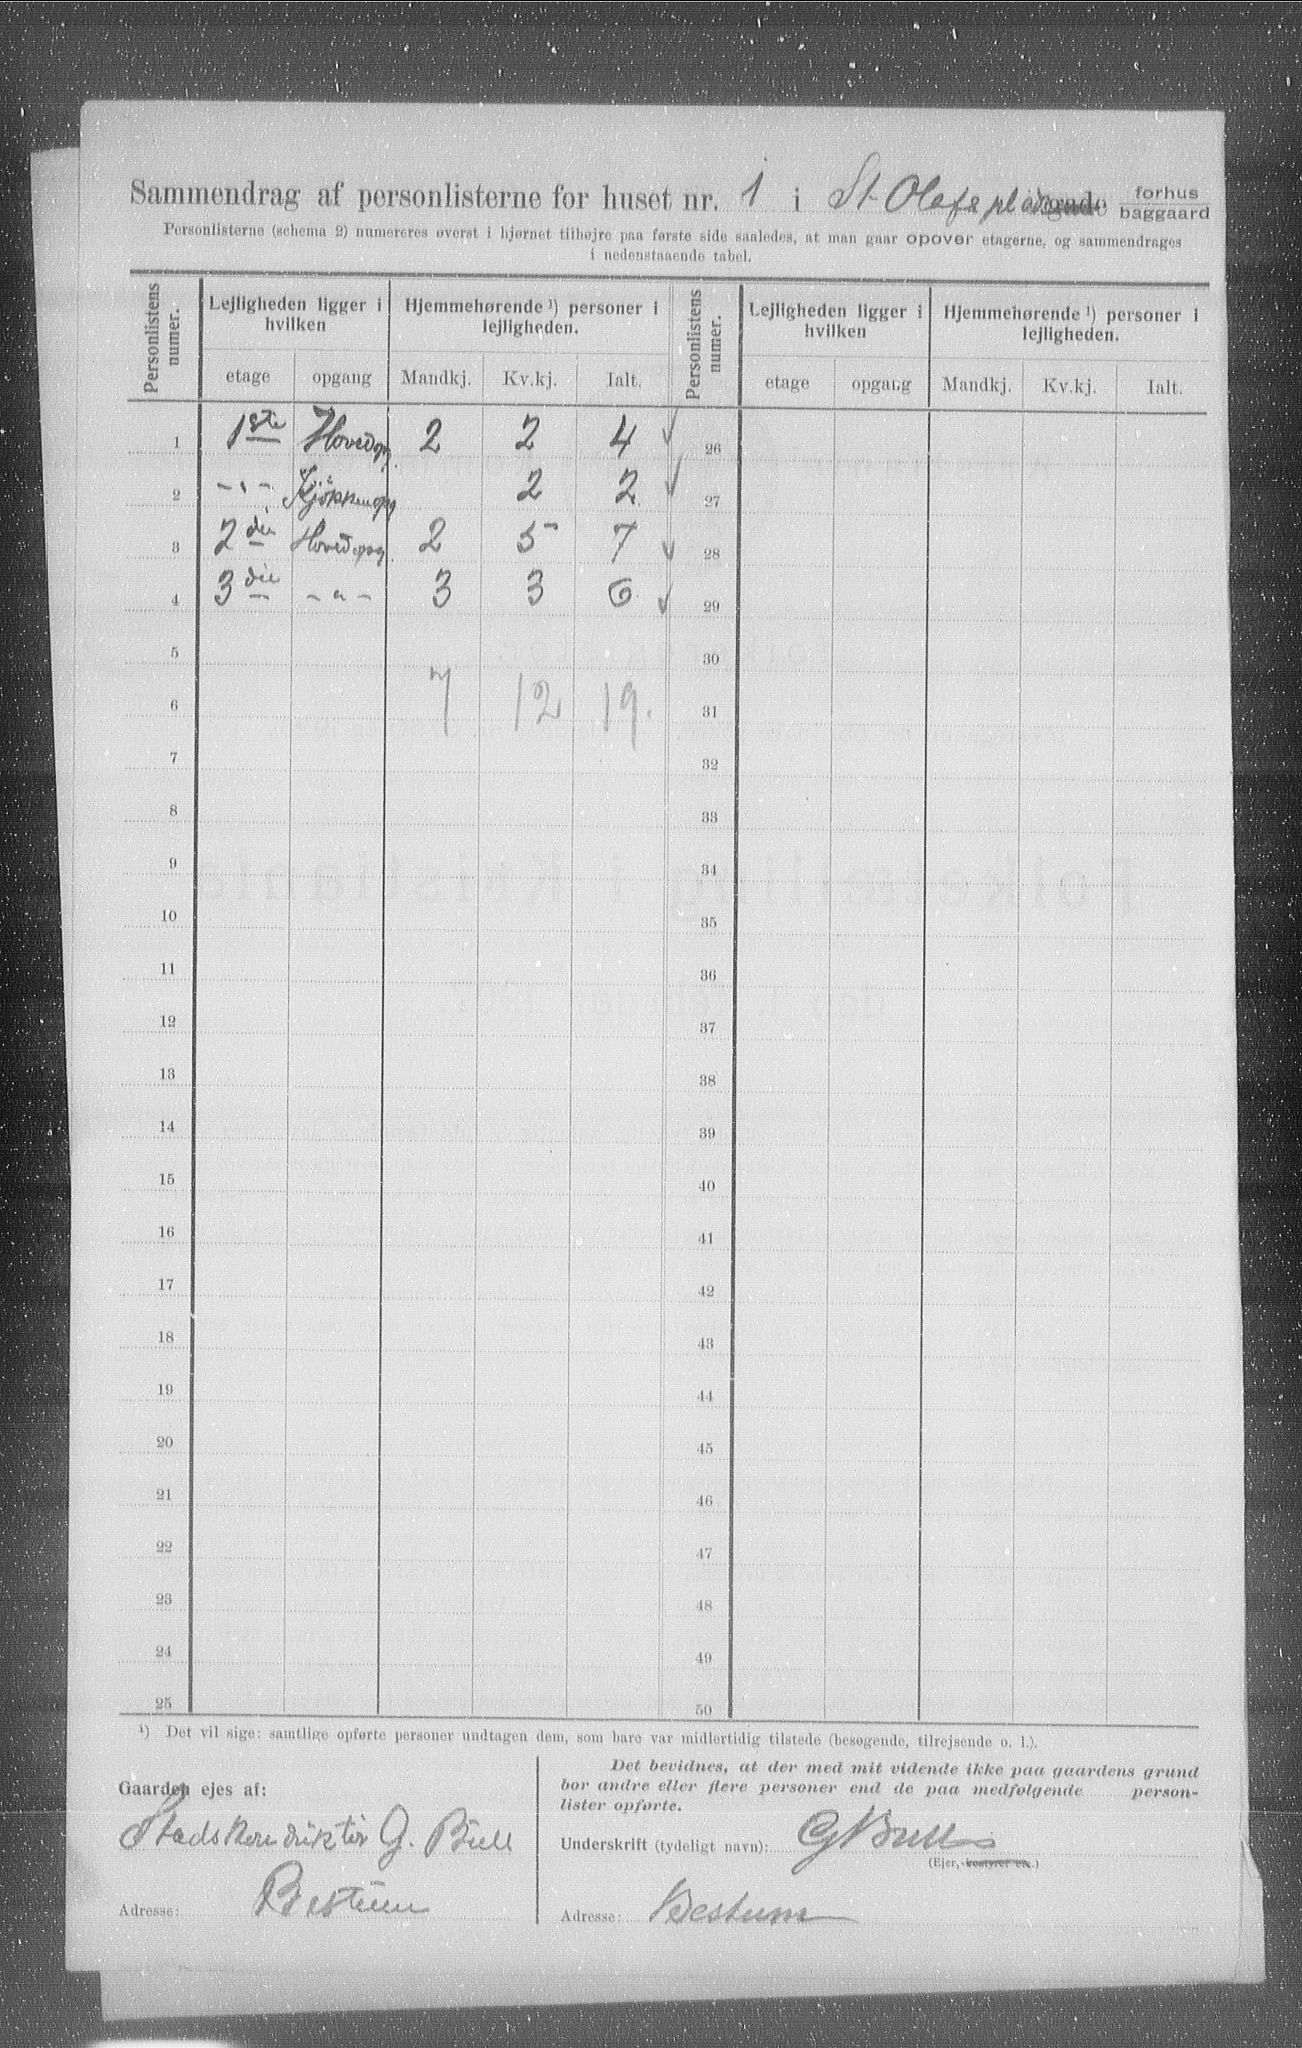 Sammendrag af personlisterne for huset nr. 1 i St Olafs plads gade forhus baggaard
Personlisterne (schema 2) numereres øverst i hjørnet tilhøjre paa første side saaledes, at man gaar opover etagerne, og sammendrages
i nedenstaaende tabel.
Personlistens numer. Lejligheden ligger i hvilken Hjemmehørende ¹) personer i lejligheden. Personlistens numer. Lejligheden ligger i hvilken Hjemmehørende ¹) personer i lejligheden.
etage opgang Mandkj. Kv.kj. Ialt. etage opgang Mandkj. Kv.kj. Ialt.
1 1ste Hovedopg. 2 2 4 ✓ 26
2 -"- Kjøkkenopg 2 2 ✓ 27
3 2den Hovedopg. 2 5 7 ✓ 28
4 3die -"- 3 3 6 ✓ 29
5 30
6 7 12 19. 31
7 32
8 33
9 34
10 35
11 36
12 37
13 38
14 39
15 40
16 41
17 42
18 43
19 44
20 45
21 46
22 47
23 48
24 49
25 50
¹) Det vil sige: samtlige opførte personer undtagen dem, som bare var midlertidig tilstede (besøgende, tilrejsende o. l.).
Gaarden ejes af:
Stadskonduktør G. Bull
Adresse: Bestum
Det bevidnes, at der med mit vidende ikke paa gaardens grund
bor andre eller flere personer end de paa medfølgende person-
lister opførte.
Underskrift (tydeligt navn): G Bull
(Ejer, bestyrer etc.)
Adresse: Bestum